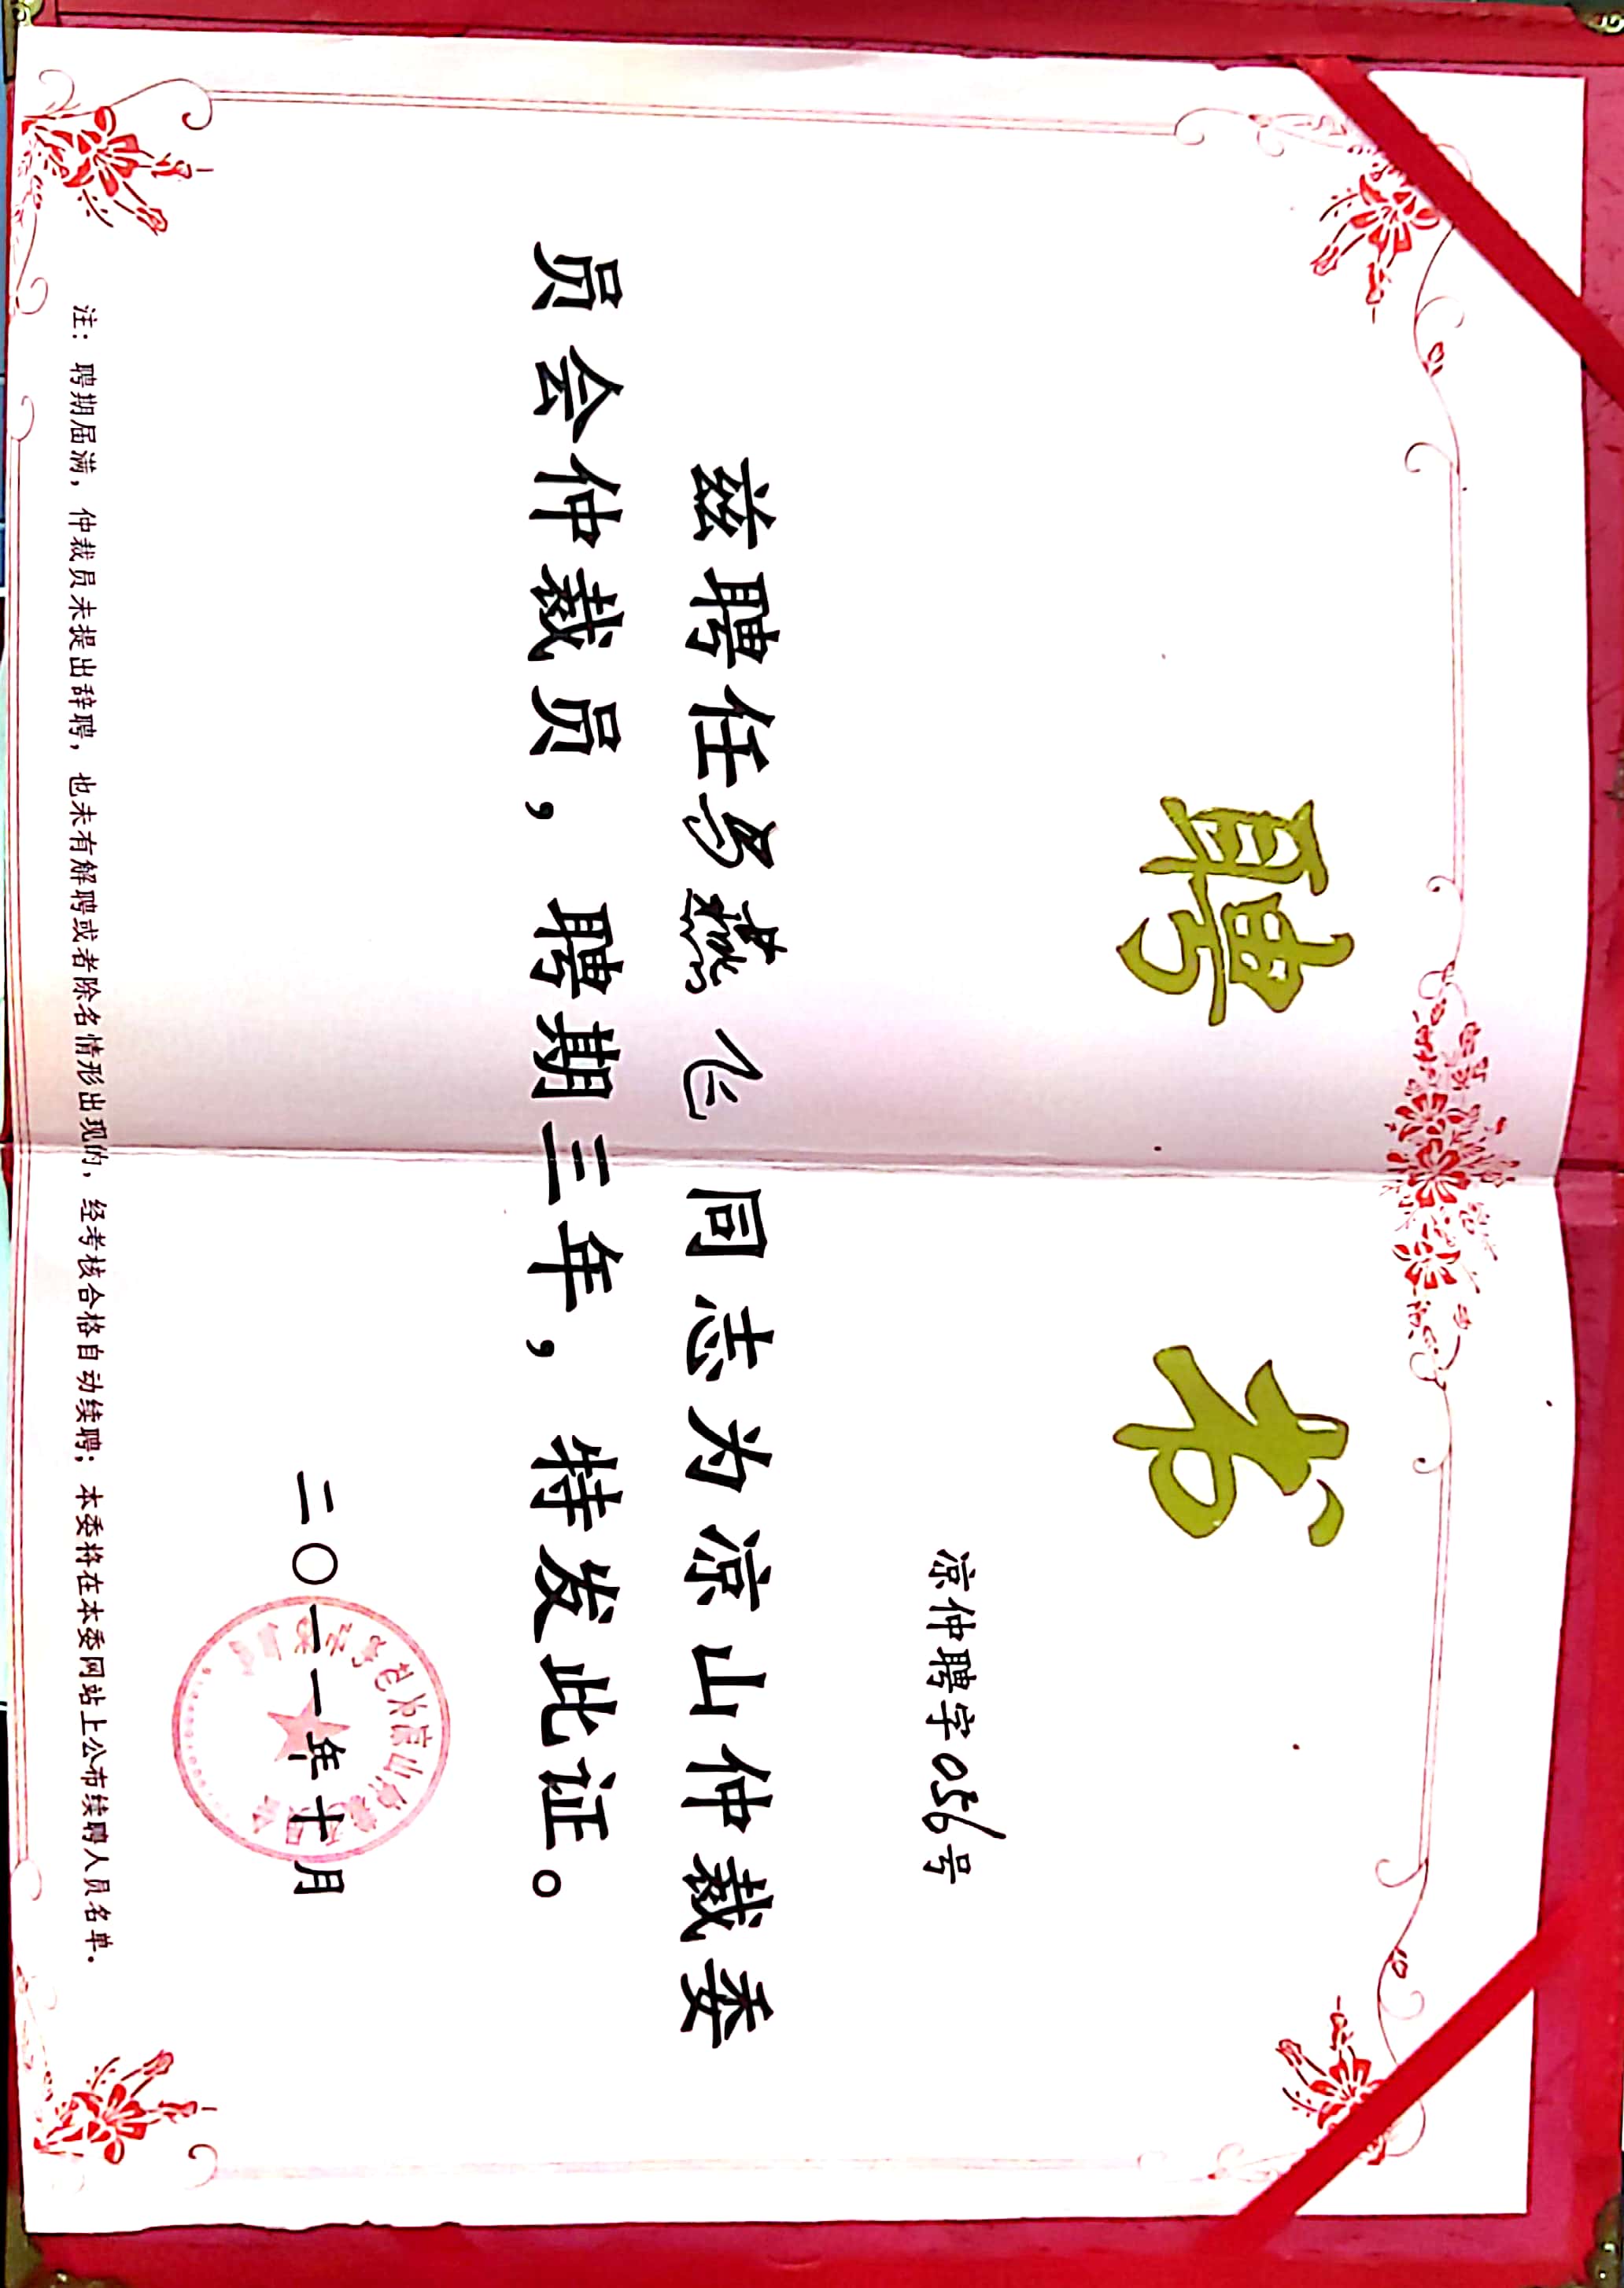 聘书
凉仲聘字056号
兹聘任燕飞同志为凉山仲裁委
员会仲裁员，聘期三年，特发此证。
二〇一一年十月
注：聘期届满，仲裁员未提出辞聘，也未有解聘或者除名情形出现的，经考核合格自动续聘；本委将在本委网站上公布续聘人员名单。